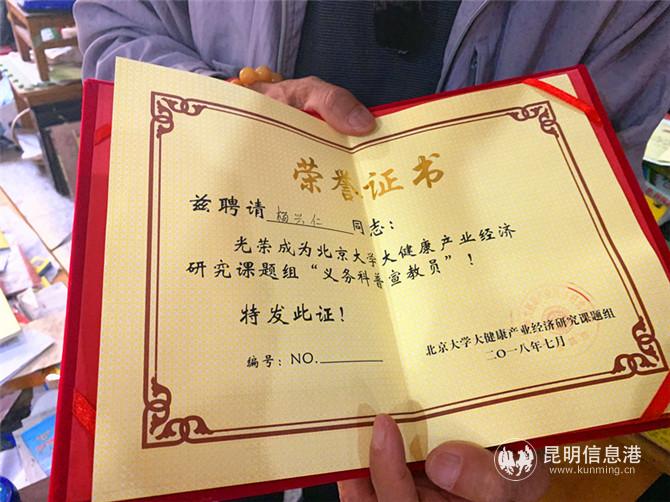 荣誉证书
兹聘请 杨兴仁 同志：
光荣成为北京大学大健康产业经济
研究课题组“义务科普宣教员”！
特发此证！
编号：NO.
北京大学大健康产业经济研究课题组
二〇一八年七月
昆明信息港
www.kunming.cn